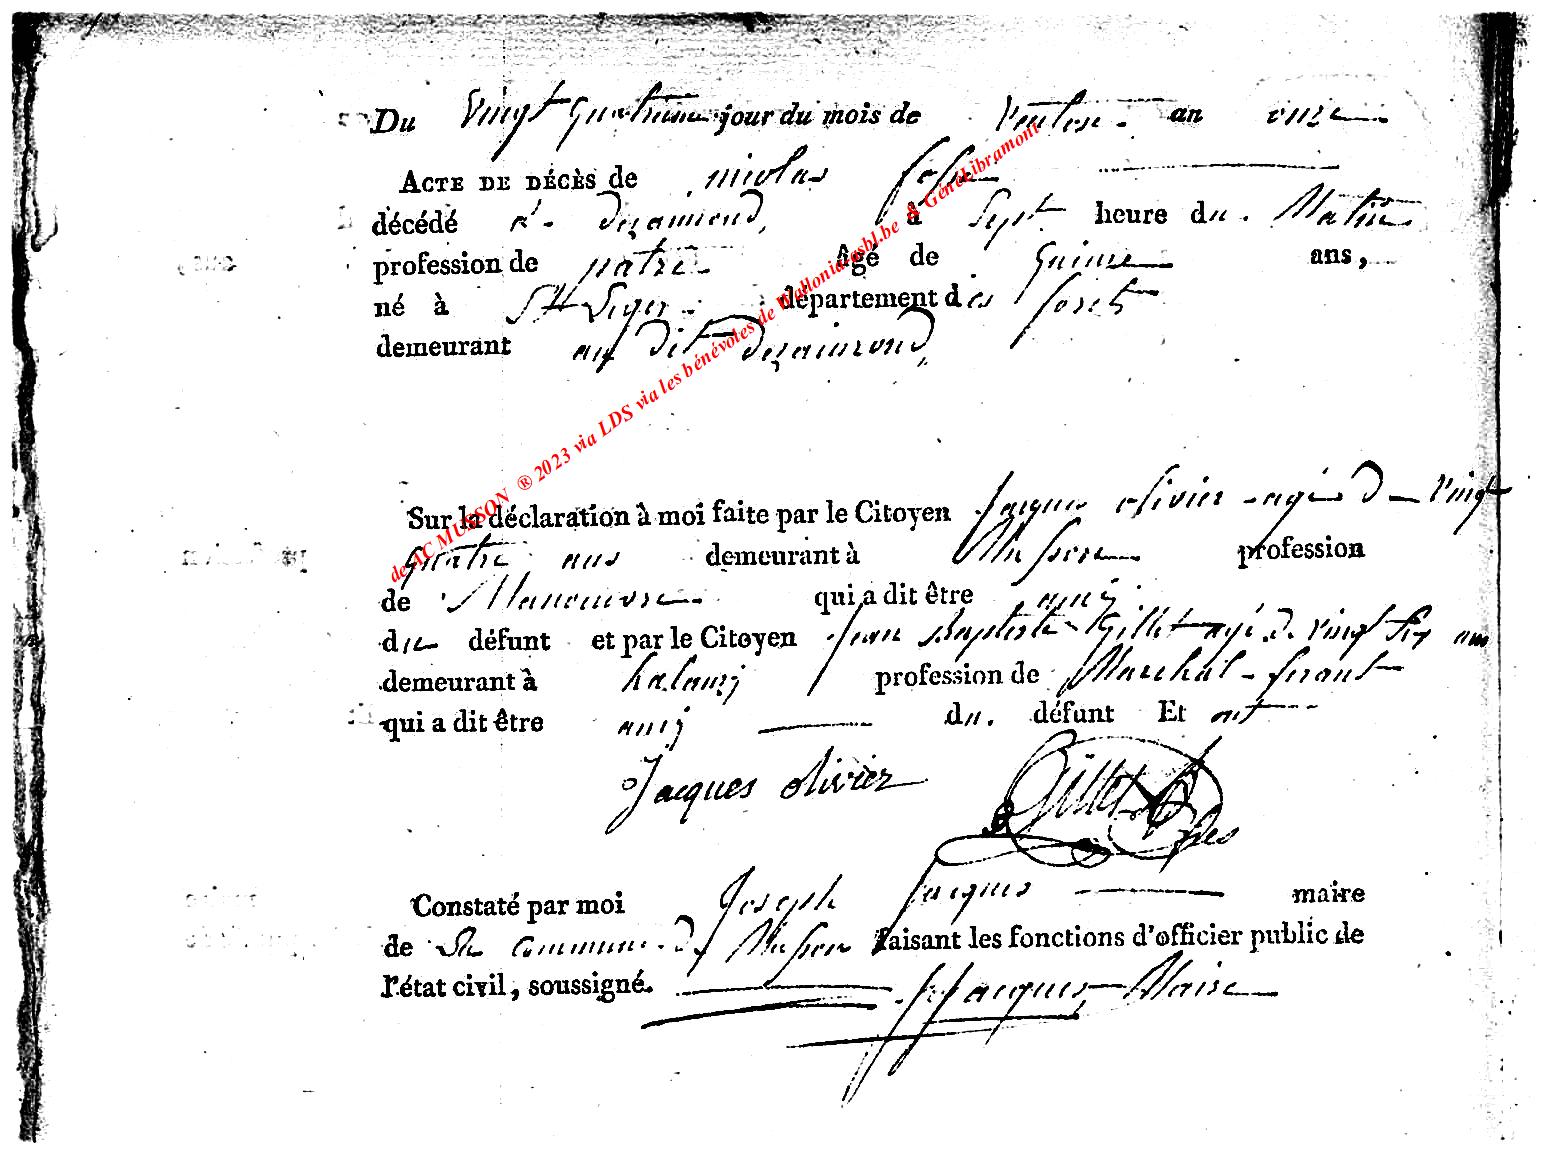 Du vingt quatrieme jour du mois de ventose an onze
ACTE DE DÉCÈS de nicolas
décédé à à Sept heure du Matin
profession de patre Agé de ans,
né à St Leger département des forets
demeurant au dit
Sur la déclaration à moi faite par le Citoyen jacques olivier agé de vingt
quatre ans demeurant à Musson profession
de Manouvre qui a dit être amij
du défunt et par le Citoyen jean Baptiste Gillet agé de vingt six ans
demeurant à halanzij profession de Marchal ferant
qui a dit être amij du défunt Et ont
Jacques olivier Gillet
Constaté par moi Joseph jacques maire
de La commune de Musson faisant les fonctions d'officier public de
l'état civil, soussigné. jjacques Maire
de AC MUSSON ® 2023 via LDS via les bénévoles de Wallonia-asbl.be & GénéLibramont